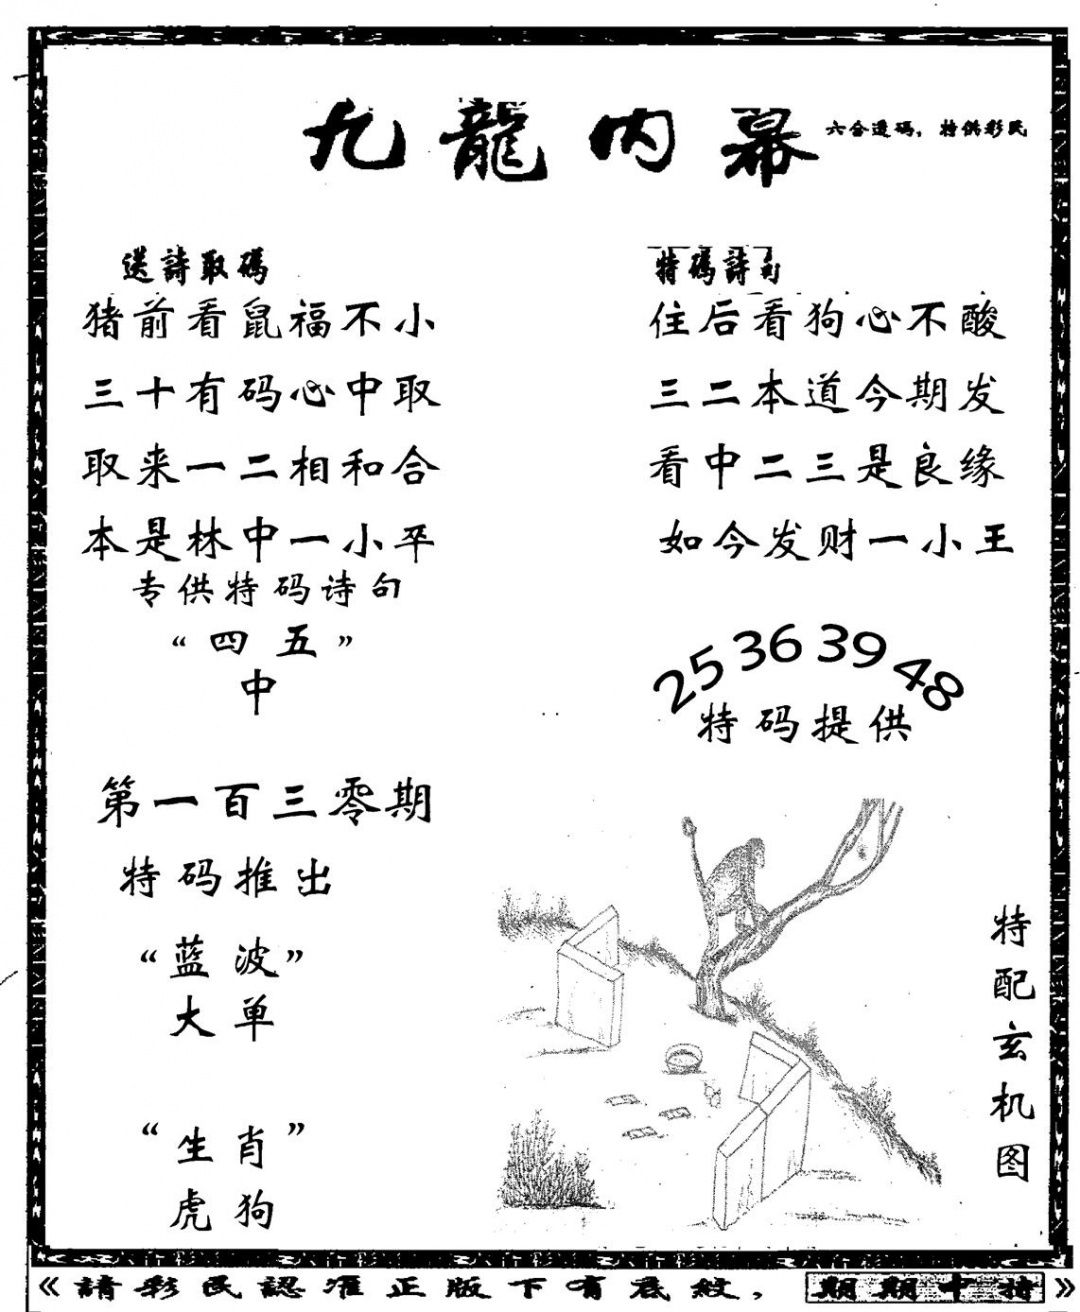 九龍內幕
六合透碼，特供彩民
送詩取碼
猪前看鼠福不小
三十有码心中取
取来一二相和合
本是林中一小卒
专供特码诗句
“四五”
中
特碼詩句
住后看狗心不酸
三二本道今期发
看中二三是良缘
如今发财一小王
25 36 39 48
特码提供
第一百三零期
特码推出
“蓝波”
大单
“生肖”
虎狗
特配玄机图
《請彩民認准正版下有底紋，期期中特》